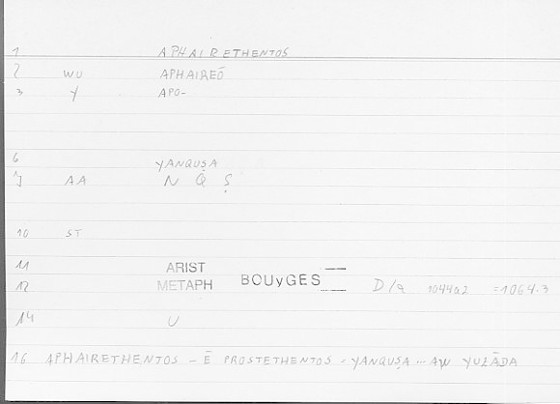 1 APHAIRETHENTOS
2 WU APHAIREŌ
3 Y APO-
6 YANQUṢA
7 AA N Q Ṣ
10 ST
11 ARIST
12 METAPH BOUyGES D/a 1044a2 =1064.3
14 U
16 APHAIRETHENTOS - Ē PROSTETHENTOS - YANQUṢA ... AW YUZĀDA